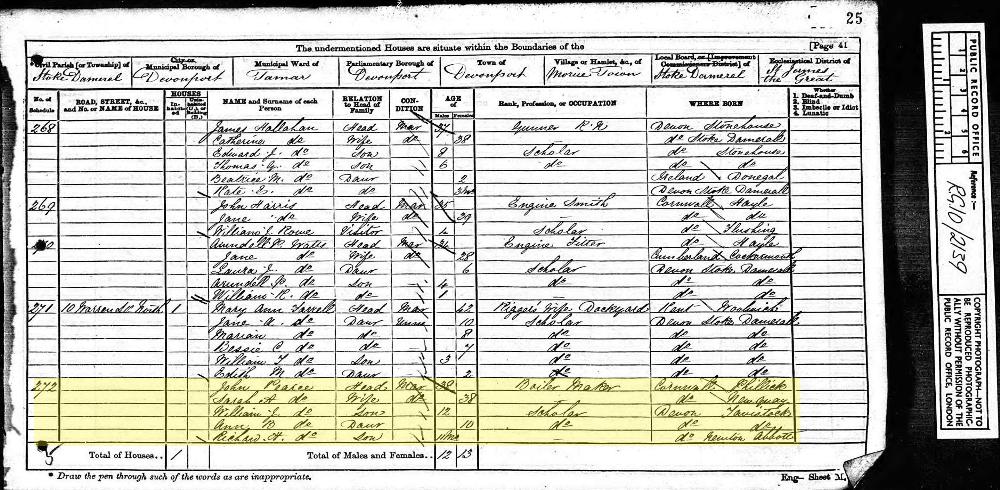 25
The undermentioned Houses are situate within the Boundaries of the [Page 41
Civil Parish [or Township] of City or Municipal Borough of Municipal Ward of Parliamentary Borough of Town of Village or Hamlet, &c., of Local Board, or [Improvement Commissioners District] of Ecclesiastical District of
Stoke Damerel Devonport Tamar Devonport Devonport Morice Town Stoke Damerel St James the Great
No. of Schedule ROAD, STREET, &c., and No. or NAME of HOUSE HOUSES Inhabited Uninhabited (U.), or Building (B.) NAME and Surname of each Person RELATION to Head of Family CONDITION AGE of Males Females Rank, Profession, or OCCUPATION WHERE BORN Whether 1. Deaf-and-Dumb 2. Blind 3. Imbecile or Idiot 4. Lunatic
268 James Hallahan Head Mar 37 Gunner R.N Devon Stonehouse
Catherine do Wife do 38 do Stoke Damerall
Edward J. do Son 8 Scholar do Stonehouse
Thomas do Son 6 do do do
Beatrice M. do Daur 2 Ireland Donegal
Kate E. do do 3mo Devon Stoke Damerall
269 John Harris Head Mar 35 Engine Smith Cornwall Hayle
Jane do Wife do 39 — do do
William J. Rowe Visitor 4 Scholar do Flushing
Arundell P. Watts Head Mar Engine Fitter do Hayle
Jane do Wife do 28 Cumberland Cockermouth
Laura J. do Daur 6 Scholar Devon Stoke Damerall
Arundell P. do Son 4 do do do
William R. do do 1 — do do
271 10 Warren St North 1 Mary Ann Head Mar 42 Rigger's Wife Dockyard Kent Woolwich
Jane A. do Daur Unm 10 Scholar Devon Stoke Damerall
Marian do do 8 do do do
Bessie C. do do 7 do do do
William T do Son 3 do do do
Edith M do Daur 2 do do do
272 John Pearce Head Mar 38 Boiler Maker Cornwall Phillick
Sarah A do Wife do 38 do New quay
William J. do Son 12 Scholar Devon Tavistock
Ann B do Daur 10 do do do
Richard A. do Son 11mo — do Newton Abbott
5 Total of Houses.. 1 Total of Males and Females.. 12 13
* Draw the pen through such of the words as are inappropriate. Eng—Sheet M.
PUBLIC RECORD OFFICE
1 2 3 4 5 6
Reference:—
RG10/2139
COPYRIGHT PHOTOGRAPH—NOT TO BE REPRODUCED PHOTOGRAPHICALLY WITHOUT PERMISSION OF THE PUBLIC RECORD OFFICE, LONDON